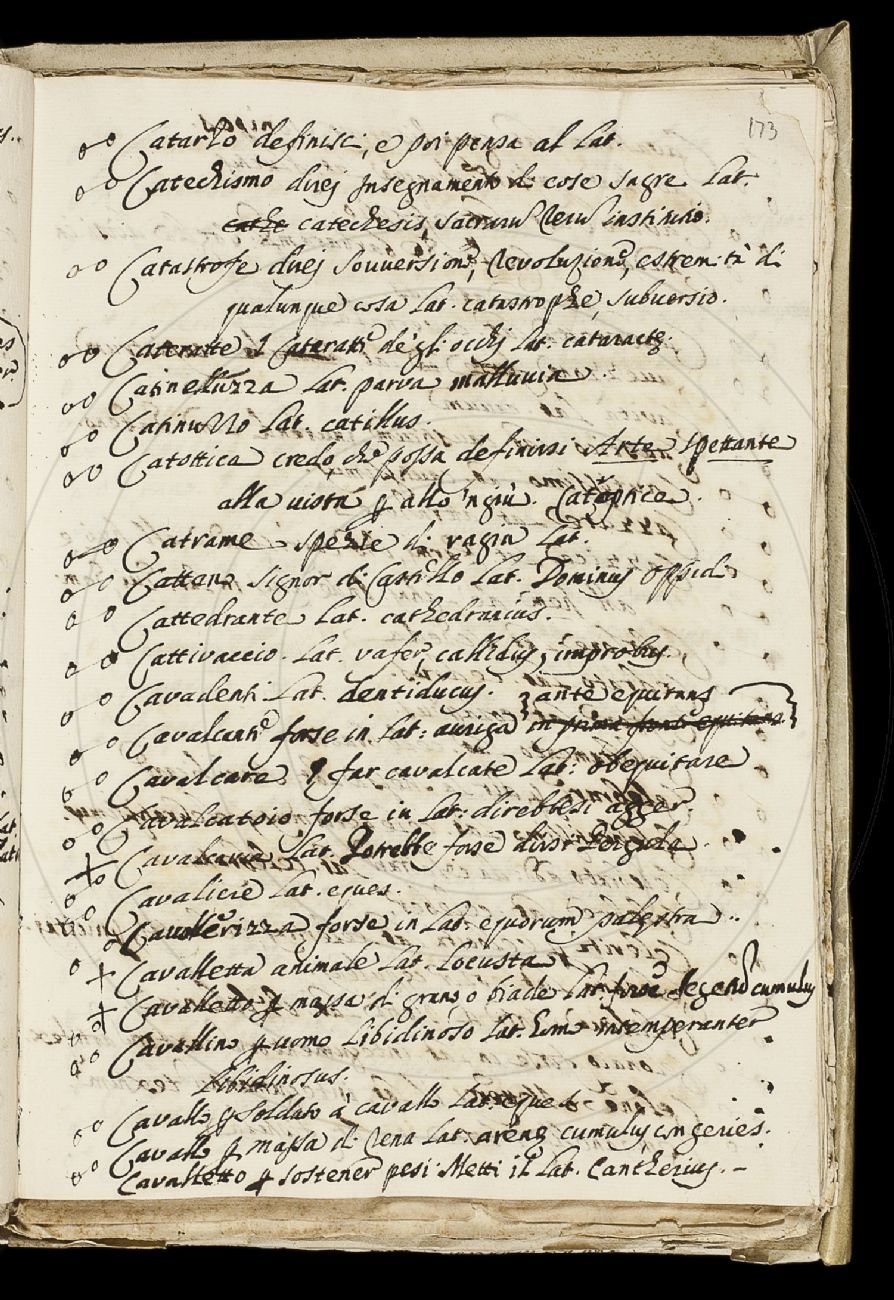 173
Catarro definisci, e poi pensa al Lat.
Catechismo duej Insegnamento di cose sagre Lat.
cathe catechesis, sacrarum rerum institutio.
Catastrofe duej Sovversione, Revoluzione, estremità di
qualunque cosa Lat. catastrophe, subversio.
Catteratte de gl'occhj Lat. cataractę.
Catinelluzza Lat. parva malluvia
Catinuzzo Lat. catillus.
Catottica credo che possa definirsi Arte spettante
alla vista p allo 'ngiù. Catoptice.
Catrame spezie di ragia Lat.
Cattano Signor di Castello Lat. Dominus oppidi
Cattedrante Lat. cathedrarius.
Cattivaccio. Lat. vafer, callidus, improbus.
Cavadenti Lat. dentiducus. ante equitans
Cavalcante forse in Lat: auriga in prima fronte equitans
Cavalcare, far cavalcate Lat: obequitare
Cavalcatoio forse in Lat: direbbesi agger
Lat. Potrebbe forse dirsi Pergula.
Cavaliere Lat. eques.
Cavallerizza forse in Lat: equorum palestra..
Cavalletta animale Lat. Locusta
Cavalletto p massa di grano, o biade Lat. forse segetum cumulus
Cavallino p uomo libidinoso Lat. homo intemperanter
libidinosus.
Cavallo p soldato à cavallo Lat. eques
Cavallo p massa di rena Lat. arenę cumulus congeries.
Cavalletto p sostener pesi Metti il Lat. Cantherius. -